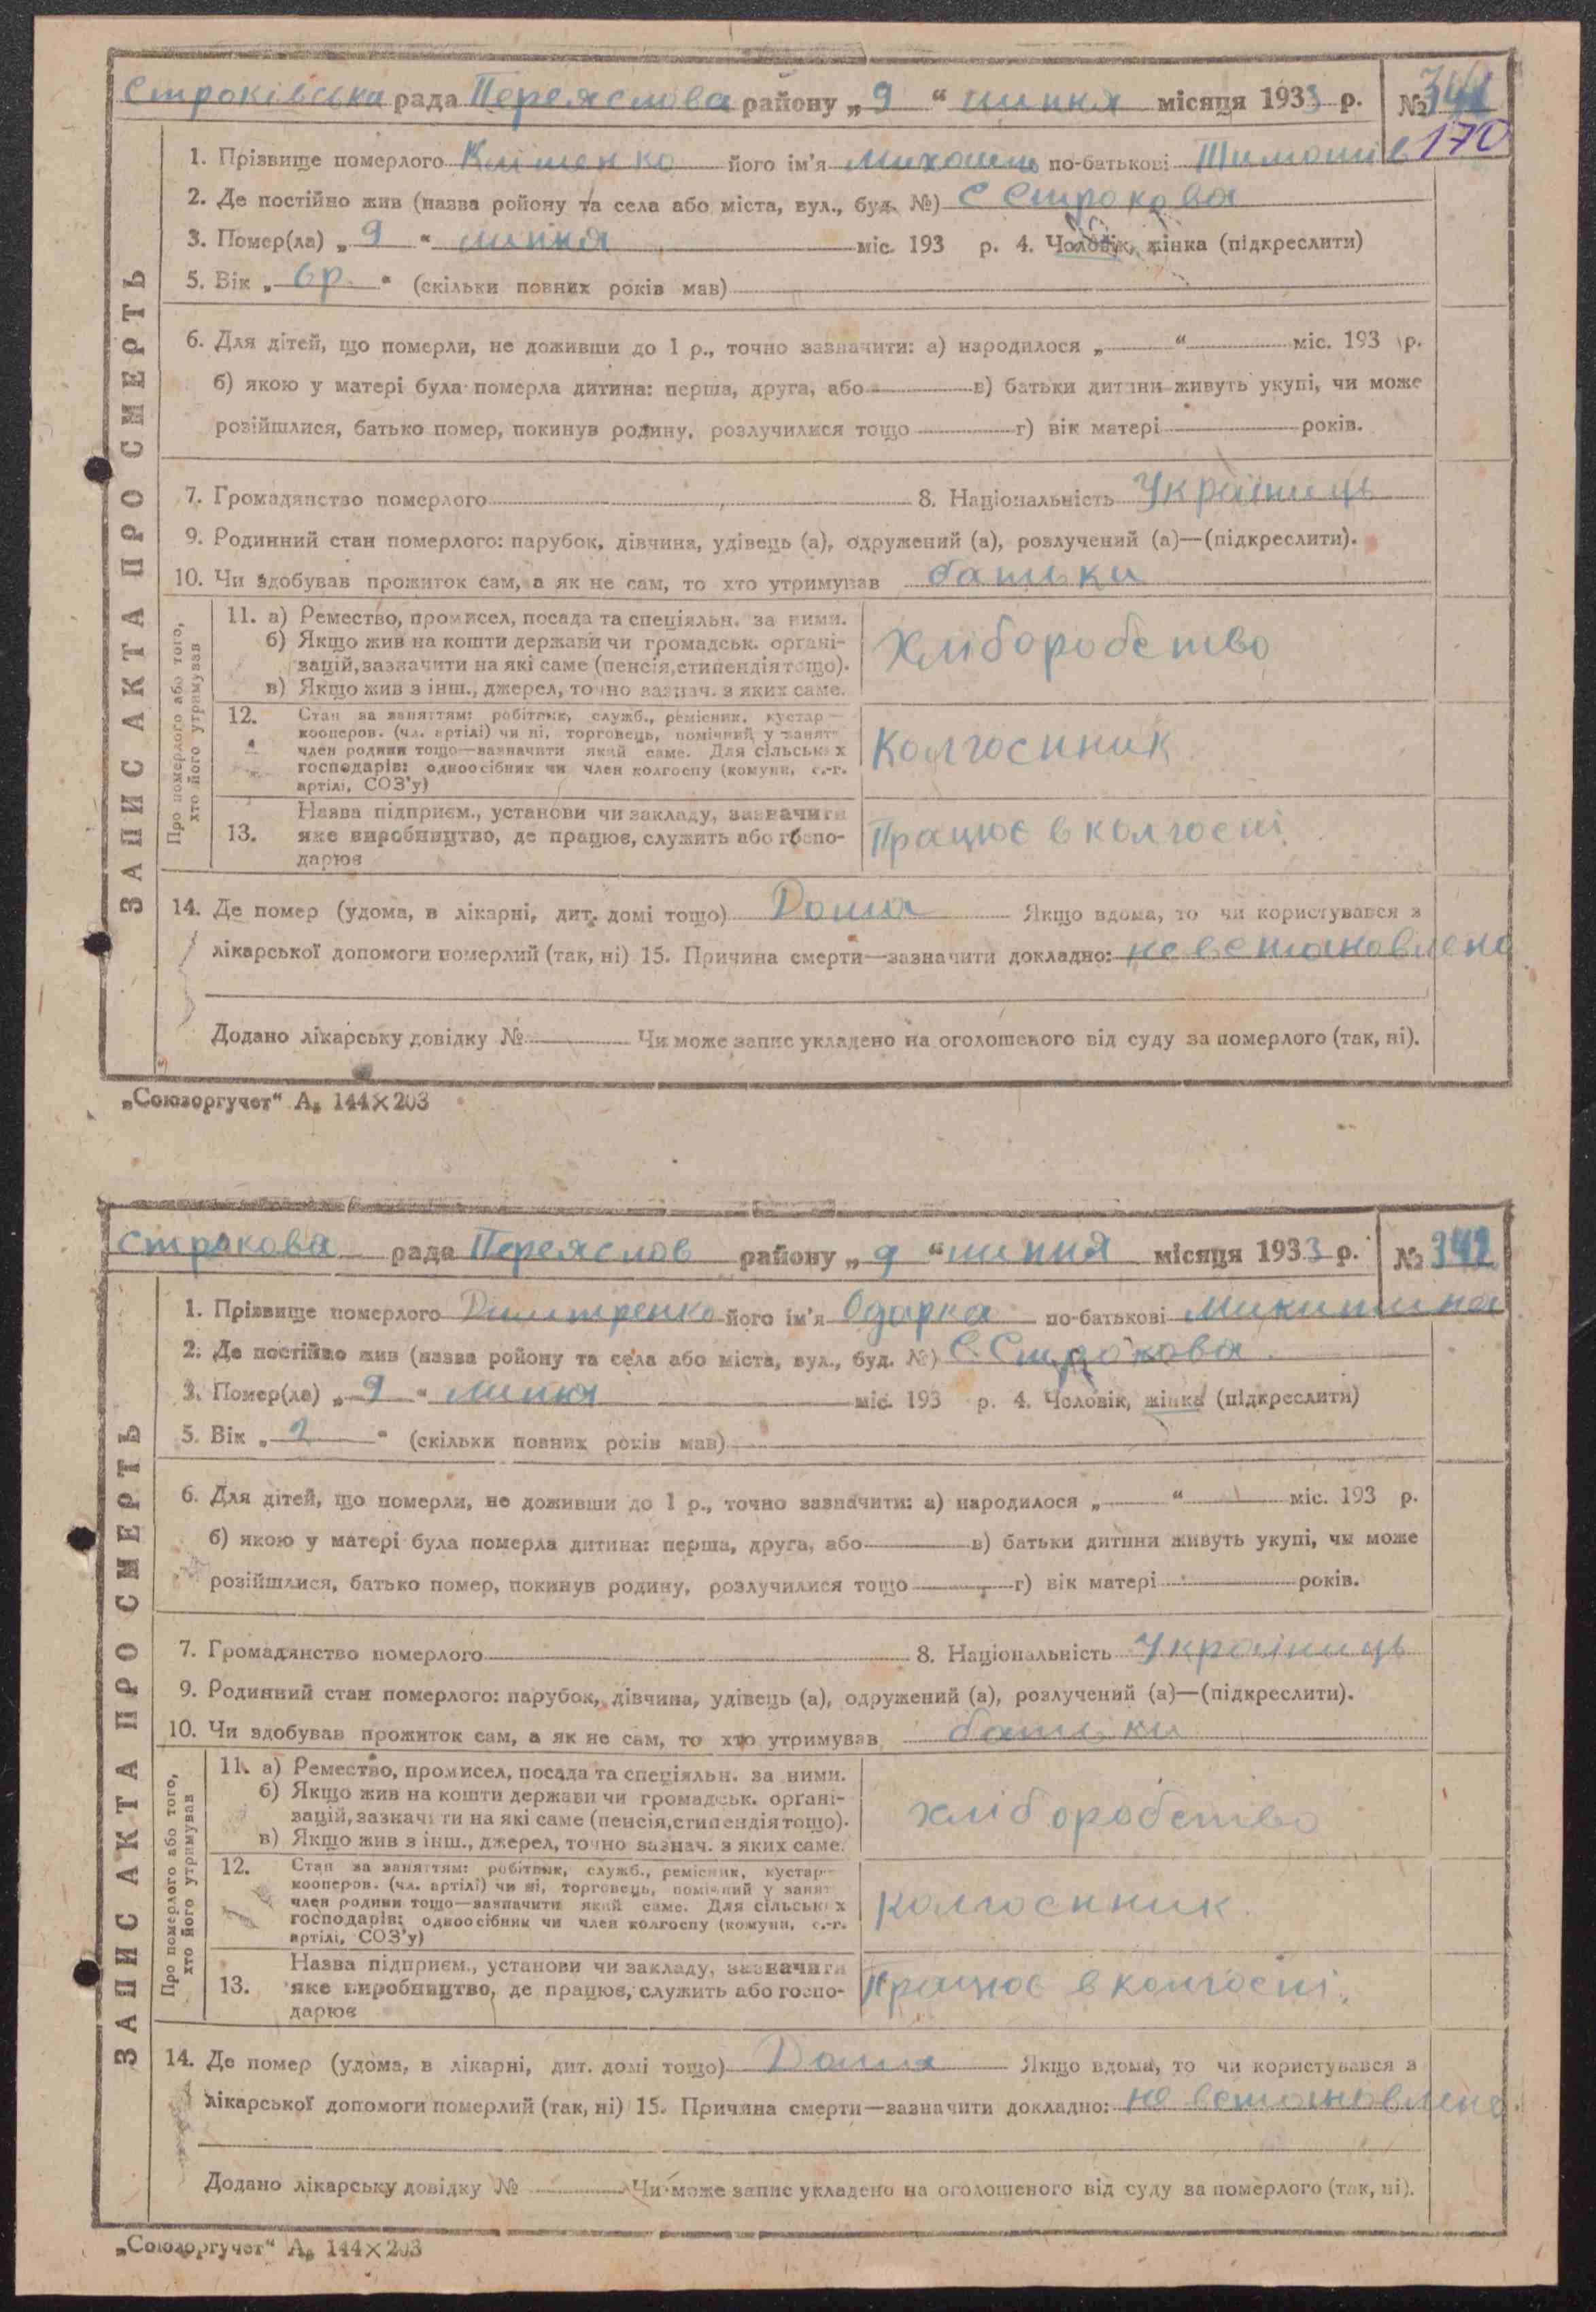 Строківська рада Переяслова району „ 9 “ липня місяця 1933 р. №341
170
1. Прізвище померлого Кліменко його ім'я Михаиль по-батькові Тимошів
2. Де постійно жив (назва ройону та села або міста, вул., буд. №) С Строкова
3. Помер(ла) „ 9 “ липня міс. 193 р. 4. Чоловік, жінка (підкреслити)
5. Вік „ 6р. “ (скільки повних років мав)
6. Для дітей, що померли, не доживши до 1 р., точно зазначити: а) народилося „ “ міс. 193 р.
б) якою у матері була померла дитина: перша, друга, або в) батьки дитини живуть укупі, чи може
розійшлися, батько помер, покинув родину, розлучилися тощо г) вік матері років.
7. Громадянство померлого 8. Національність Україниць
9. Родинний стан померлого: парубок, дівчина, удівець (а), одружений (а), розлучений (а)—(підкреслити).
10. Чи здобував прожиток сам, а як не сам, то хто утримував батьки
11. а) Ремество, промисел, посада та спеціяльн. за ними.
б) Якщо жив на кошти держави чи громадськ. органі-
зацій, зазначити на які саме (пенсія, стипендія тощо).
в) Якщо жив з інш., джерел, точно зазнач. з яких саме.
Хліборобство
12. Стан за заняттям: робітник, служб., ремісник, кустар—
кооперов. (чл. артілі) чи ні, торговець, помічний у занят.
член родини тощо—зазначити який саме. Для сільських
господарів: одноосібник чи член колгоспу (комуни, с.-г.
артілі, СОЗ'у)
Колгоспник
13. Назва підприєм., установи чи закладу, зазначити
яке виробництво, де працює, служить або госпо-
дарює
Працює в колгоспі.
14. Де помер (удома, в лікарні, дит. домі тощо) Дома Якщо вдома, то чи користувався з
лікарської допомоги померлий (так, ні) 15. Причина смерти—зазначити докладно: не встановлено
Додано лікарську довідку № Чи може запис укладено на оголошеного від суду за померлого (так, ні).
ЗАПИС АКТА ПРО СМЕРТЬ
Про померлого або того,
хто його утримував
„Союзоргучет“ А₅ 144×203
Строкова рада Переяслов району „ 9 “ липня місяця 1933 р. № 342
1. Прізвище померлого Димтренко його ім'я Одарка по-батькові Микитина
2. Де постійно жив (назва ройону та села або міста, вул., буд. №) С. Строкова
3. Помер(ла) „ 9 “ липня міс. 193 р. 4. Чоловік, жінка (підкреслити)
5. Вік „ 2 “ (скільки повних років мав)
6. Для дітей, що померли, не доживши до 1 р., точно зазначити: а) народилося „ “ міс. 193 р.
б) якою у матері була померла дитина: перша, друга, або в) батьки дитини живуть укупі, чи може
розійшлися, батько помер, покинув родину, розлучилися тощо г) вік матері років.
7. Громадянство померлого 8. Національність Україниць
9. Родинний стан померлого: парубок, дівчина, удівець (а), одружений (а), розлучений (а)—(підкреслити).
10. Чи здобував прожиток сам, а як не сам, то хто утримував батьки
11. а) Ремество, промисел, посада та спеціяльн. за ними.
б) Якщо жив на кошти держави чи громадськ. органі-
зацій, зазначити на які саме (пенсія, стипендія тощо).
в) Якщо жив з інш., джерел, точно зазнач. з яких саме.
хліборобство
12. Стан за заняттям: робітник, служб., ремісник, кустар—
кооперов. (чл. артілі) чи ні, торговець, помічний у занят.
член родини тощо—зазначити який саме. Для сільських
господарів: одноосібник чи член колгоспу (комуни, с.-г.
артілі, СОЗ'у)
колгоспник.
13. Назва підприєм., установи чи закладу, зазначити
яке виробництво, де працює, служить або госпо-
дарює
Працює в колгоспі.
14. Де помер (удома, в лікарні, дит. домі тощо) Дома Якщо вдома, то чи користувався з
лікарської допомоги померлий (так, ні) 15. Причина смерти—зазначити докладно: не встановлено.
Додано лікарську довідку № Чи може запис укладено на оголошеного від суду за померлого (так, ні).
ЗАПИС АКТА ПРО СМЕРТЬ
Про померлого або того,
хто його утримував
„Союзоргучет“ А₅ 144×203